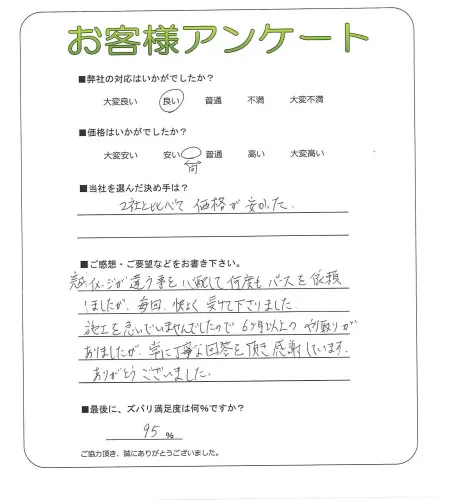 お客様アンケート
■弊社の対応はいかがでしたか？
大変良い 良い 普通 不満 大変不満
■価格はいかがでしたか？
大変安い 安い 普通 高い 大変高い
■当社を選んだ決め手は？
2社と比べて 価格が安かった.
■ご感想・ご要望などをお書き下さい。
イメージが違う事を心配して何度もパースを依頼
しましたが、毎回、快よく受けて下さりました.
施工を急いでいませんでしたので6ヶ月以上のやり取りが
ありましたが、常に丁寧な回答を頂き感謝しています.
ありがとうございました.
■最後に、ズバリ満足度は何％ですか？
95 %
ご協力頂き、誠にありがとうございました。